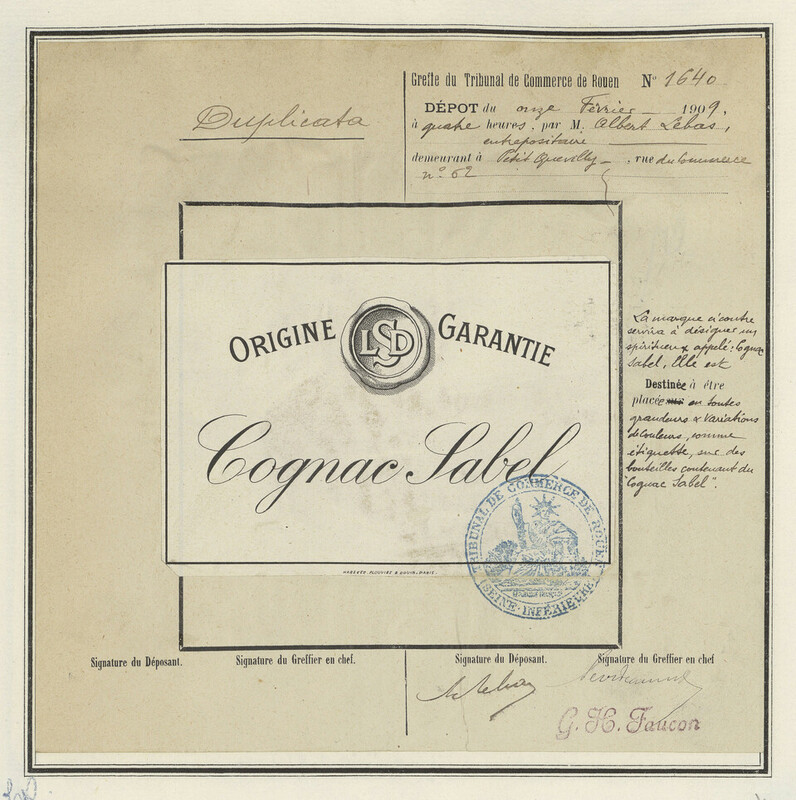 Duplicata
Greffe du Tribunal de Commerce de Rouen N° 1640
DÉPOT du onze Février 1909,
à quatre heures, par M. Albert Lebas,
entrepositaire
demeurant à Petit Quevilly, rue du Commerce
n° 62
ORIGINE LSD GARANTIE
Cognac Sabel
La marque ci contre
servira à désigner un
spiritueux appelé: Cognac
Sabel, Elle est
Destinée à être
placée en toutes
grandeurs & variations
de couleurs, comme
étiquette, sur des
bouteilles contenant du
"Cognac Sabel".
TRIBUNAL DE COMMERCE DE ROUEN
(SEINE-INFÉRIEURE)
Signature du Déposant. Signature du Greffier en chef. Signature du Déposant. Signature du Greffier en chef
G. H. Faucon